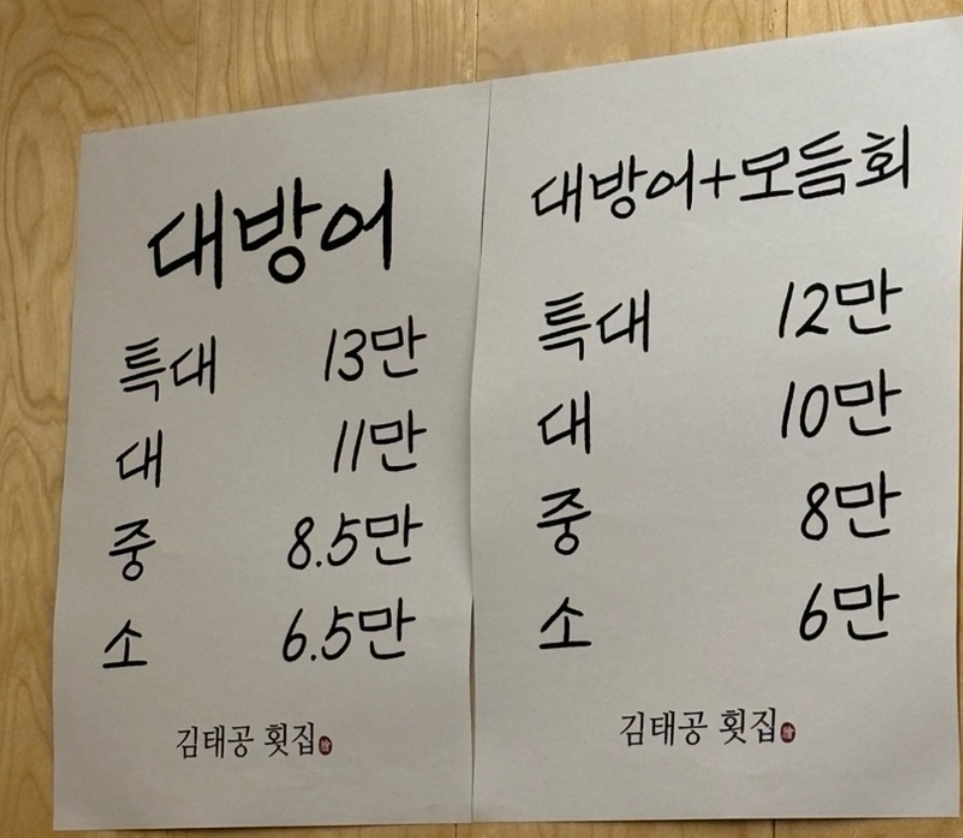 대방어
특대 13만
대 11만
중 8.5만
소 6.5만
김태공 횟집
대방어+모듬회
특대 12만
대 10만
중 8만
소 6만
김태공 횟집